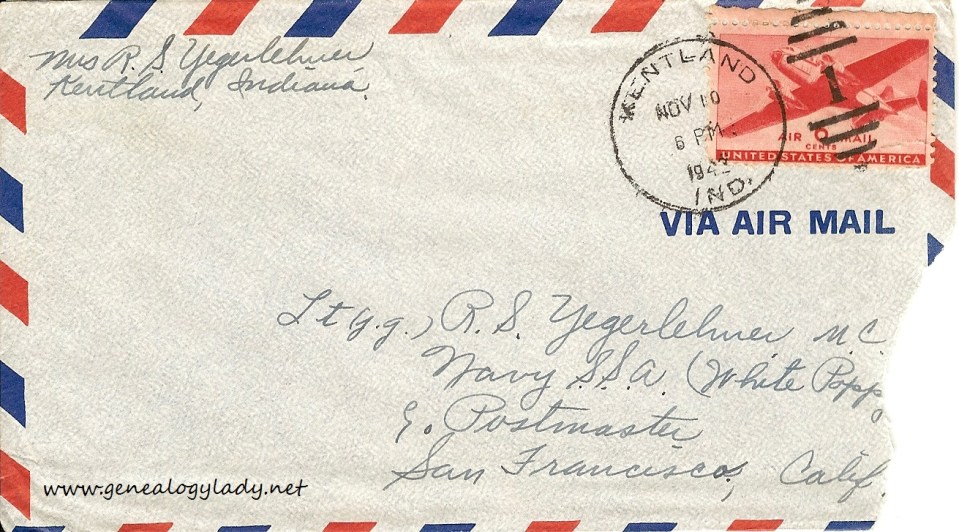 Mrs R. S. Yegerlehner
Kentland, Indiana.
KENTLAND
NOV 10
6 PM
194
IND.
1
AIR 6 MAIL
CENTS
UNITED STATES OF AMERICA
VIA AIR MAIL
Lt (j.g.) R. S. Yegerlehner M.C.
Navy S.S.A. (White Popp
℅ Postmaster
San Francisco, Calif.
www.genealogylady.net